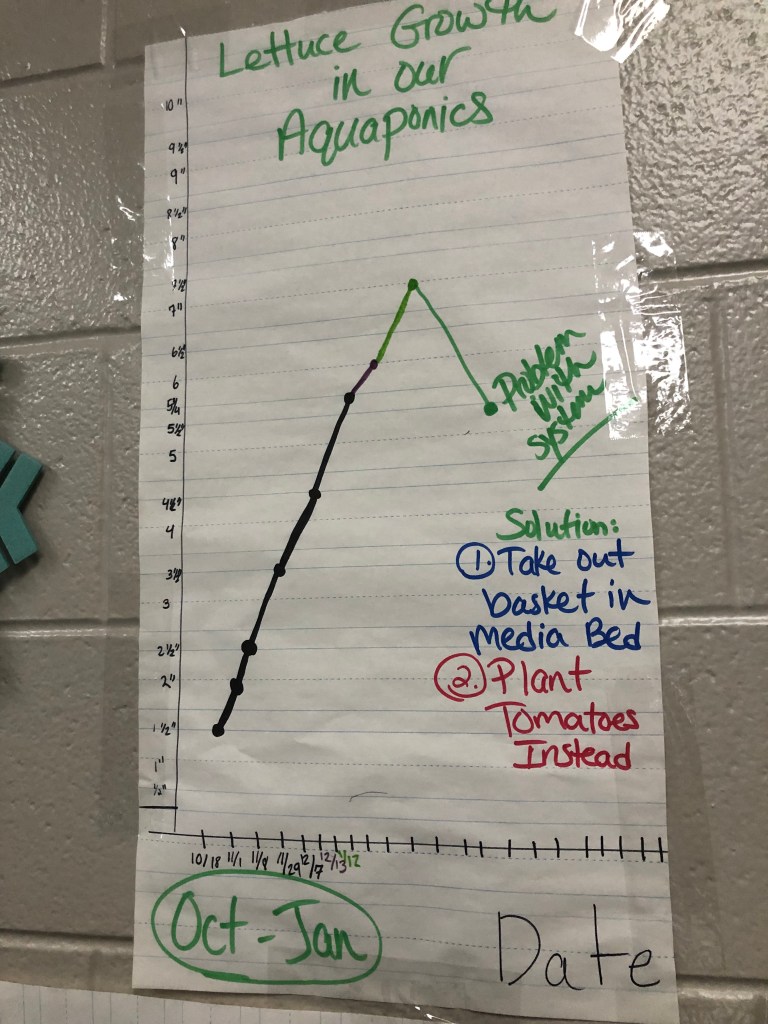 Lettuce Growth
in our
Aquaponics
10"
9 ½"
9"
8 ½"
8"
7 ½"
7"
6 ½"
6
5 ½"
5
4 ½"
4
3 ½"
3
2 ½"
2"
1 ½"
1"
½"
Problem
with
system
Solution:
1. Take out
basket in
Media Bed
2. Plant
Tomatoes
Instead
10/18 11/1 11/9 11/29 12/7 12/13 1/12
Oct - Jan
Date